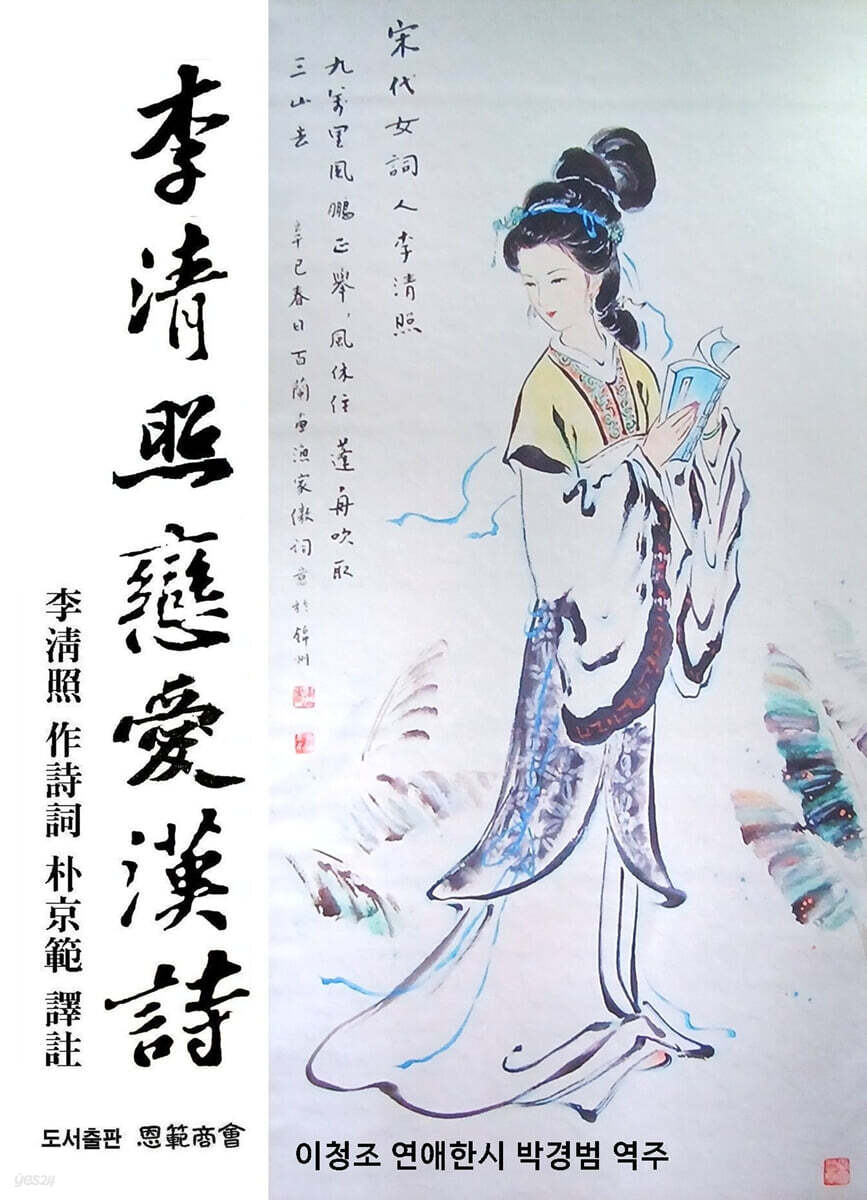 李清照戀愛漢詩
李淸照 作詩詞 朴京範 譯註
도서출판 恩範商會
宋代女詞人李清照
九萬里風鵬正舉,風休住 蓬舟吹取
三山去
辛巳春日百蘭畫漁家傲詞意於錦州
이청조 연애한시 박경범 역주
yes24